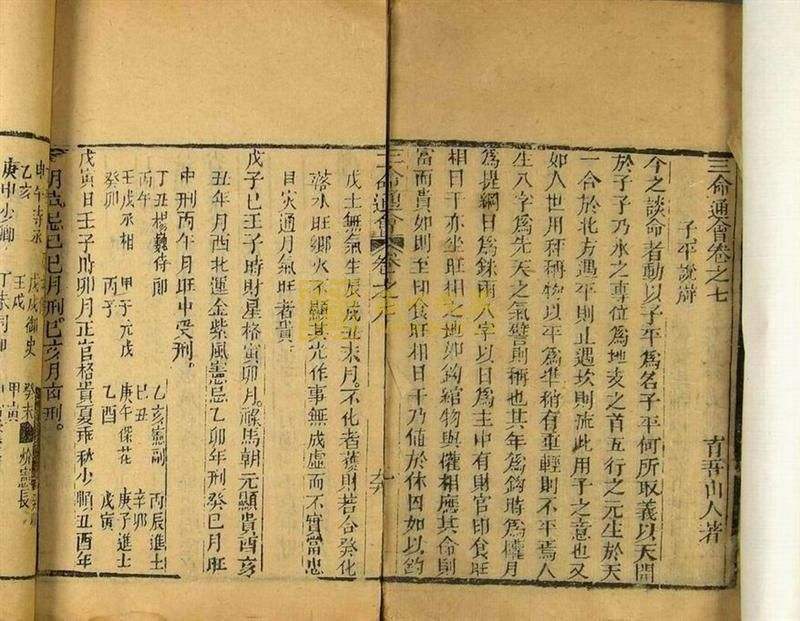 三命通會卷之七
育吾山人著
子平說辯
今之談命者動以子平爲名子平何所取義以天開
於子子乃水之專位爲地支之首五行之元生於天
一合於北方遇平則止遇坎則流此用子之意也又
如人世用秤稱物以平爲準稍有重輕則不平焉人
生八字爲先天之氣譬則秤也其年爲鈎時爲權月
爲提綱日爲銖兩八字以日爲主中有財官印食旺
相日干亦坐旺相之地如鈎綰物與權相應其命則
富而貴如則至印食旺相日干乃値於休囚如以鈎
三命通會 卷之六
戊土無氣生辰戌丑未月不化者發財若合癸化
落水旺鄉火不顯其光作事無成虛而不實當忠
目火通月氣旺者貴
戊子日壬子時財星格寅卯月祿馬朝元顯貴酉亥
丑年月西北運金紫風憲忌乙卯年刑癸巳月旺
中刑丙午月旺中受刑
丁丑楊巍侍郎 乙亥憲副 丙辰進士
丙午 己丑 辛卯
壬戌丞相 甲子元戎 庚午保花 庚子進士
癸卯 丙子 乙酉 戊寅
戊寅日壬子時卯月正官格貴夏乖秋少順丑酉年
月貴忌己巳月刑己亥月南刑
戊戌御史
乙亥 壬戌 癸未
庚申少卿 甲寅